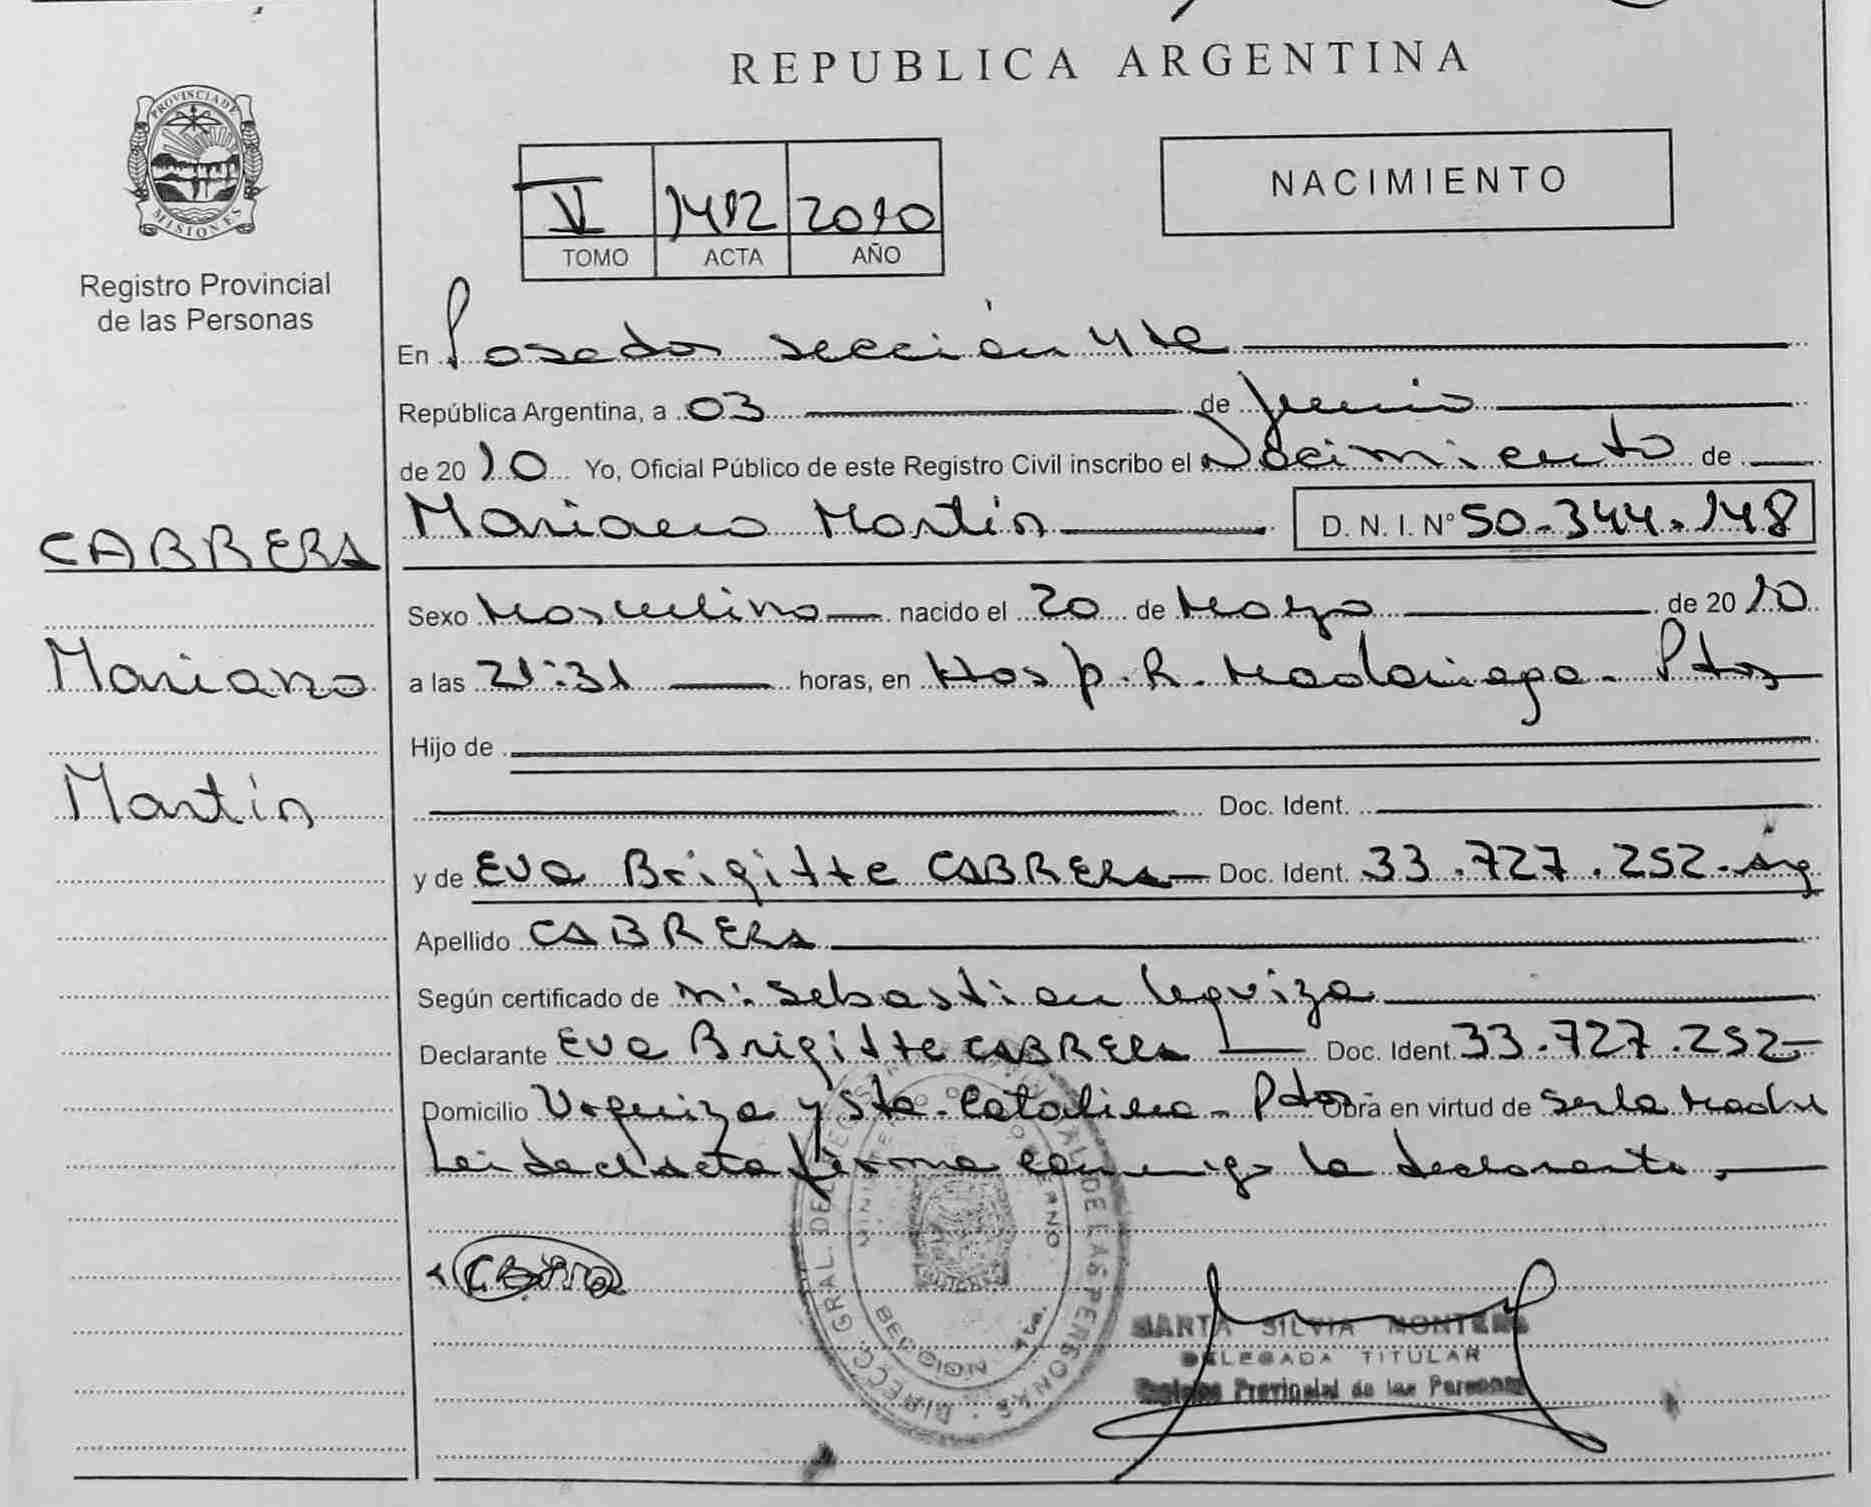 REPUBLICA ARGENTINA
PROVINCIA DE MISIONES
Registro Provincial
de las Personas
NACIMIENTO
V 1412 2010
TOMO ACTA AÑO
En Posadas sección 4ta
República Argentina, a 03 de Junio
de 2010 Yo, Oficial Público de este Registro Civil inscribo el Nacimiento de
CABRERA
Mariano Martín D. N. I. Nº 50.344.148
Sexo Masculino nacido el 20 de Mayo de 2010
Mariano
a las 21:31 horas, en Hosp. R. Madariaga - Pdas
Hijo de
Martín
Doc. Ident.
y de Eva Brigitte CABRERA Doc. Ident. 33.727.252 - Arg
Apellido CABRERA
Según certificado de M: Sebastian Leguiza
Declarante Eva Brigitte CABRERA Doc. Ident 33.727.252
Domicilio Urquiza y Sta. Catalina - Pdas Obra en virtud de ser la Madre
Leida el acta firma conmigo la declarante.
DIRECC. GRAL. DEL REGISTRO PROVINCIAL DE LAS PERSONAS
MINISTERIO DE GOBIERNO
SECCION 4ta.
MARTA SILVIA MONTERO
DELEGADA TITULAR
Registro Provincial de las Personas